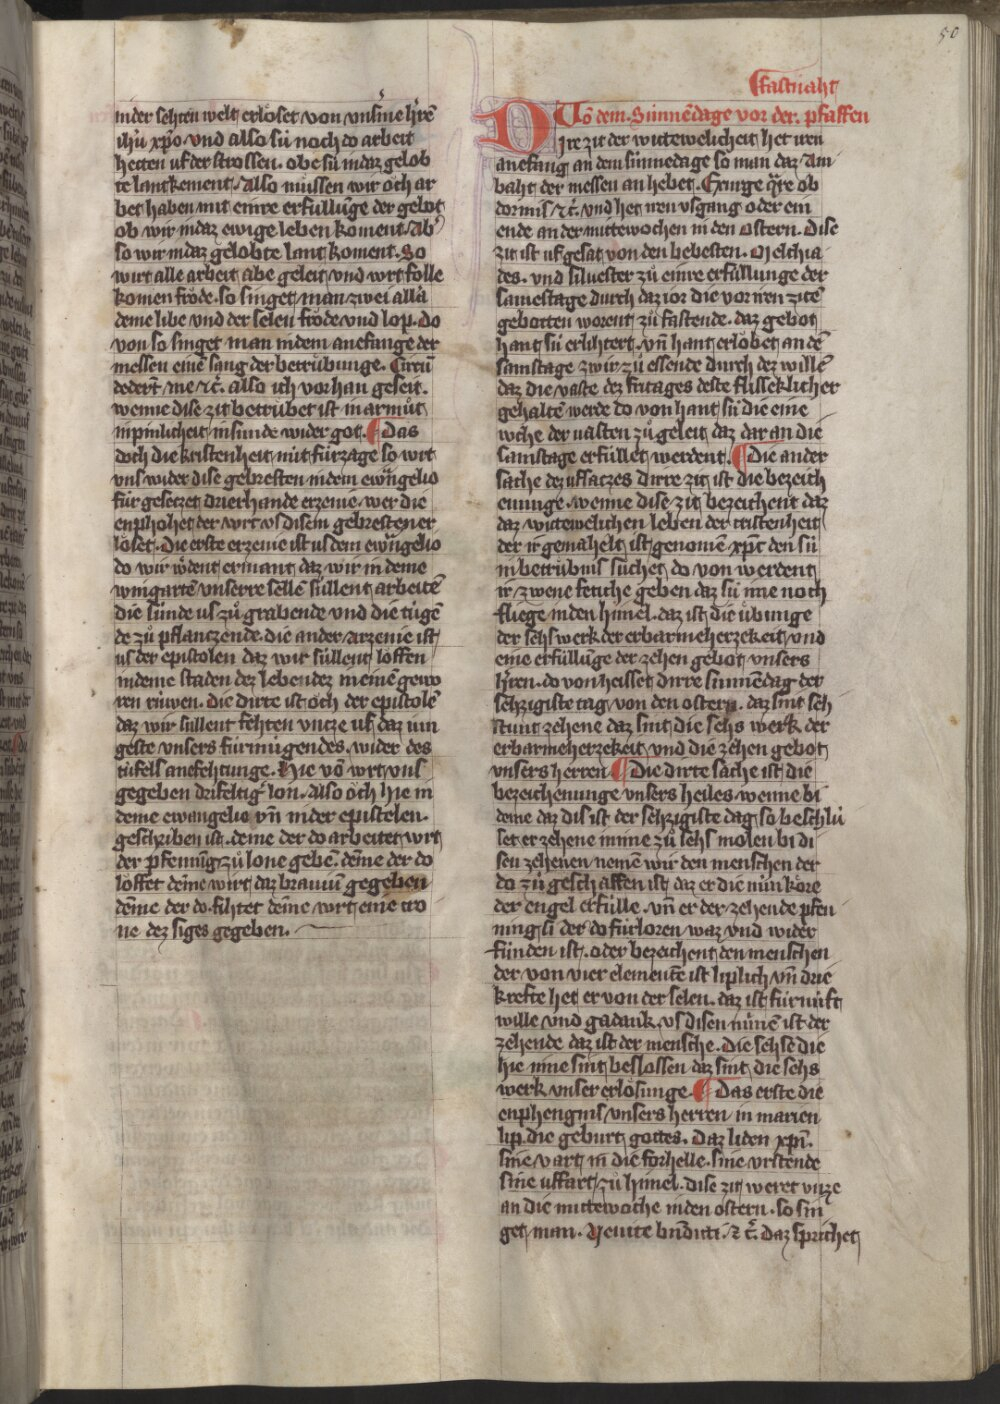 50
in der sehten welt erloͤset von vnsͤme hͤrē
ihū xp̄o. vnd also sü noch do arbeit
hetten uf der strossen. obe sü in daz gelob
te lant kement. Also muͤssen wir oͮch ar
beit haben mit einre erfüllūge der gebot
ob wir in daz ewige leben koment. Abͤ
so wir in daz gelobte lant koment. So
wirt alle arbeit abe geleit. vnd wrt folle
komen froͤde. so singet man zwei all'a
deme libe vnd der selen froͤde vnd lop. Do
von so singet man in dem anefange der
messen einē sang der betruͤbunge. Circū
dedert me ⁊c̄. also ich vor han geseit.
wenne dise zit betruͤbet ist in armuͦt
in pinlicheit in sunde wider got. Das
doch die kristenheit nüt fürzage so wrt
vns wider dise gebresten in dem ewāgelio
für gesetzet drier hande erzenie. wer die
enphohet der wrt vs disem gebresten er
loͤset. Die erste erzenie ist us dem ewāgelio
do wir wͤdent ermant daz wir in deme
wingartē unserre sellē süllent arbeitē
die sünde us zuͦ grabende vnd die tügē
de zuͦ pflantzende. die ander arzenie ist
us der epistolen daz wir süllent loͮffen
in deme staden dez lebendez in einē gewo
ren ruͤwen. Die dirte ist oͮch der epistolē
daz wir süllent fehten vntze uf daz iun
geste vnsers fürmügendes. wider des
tüfels anefehtunge. Hie vō wrt vns
gegeben drifeltig̃ lon. Also oͮch hie in
deme ewangelio vn̄ in der epistelen.
geschriben ist. deme der do arbeitet wrt
der pfennīg zuͦ lone gebē. dēme der do
loͮffet dēme wirt daz brauiū gegeben
dēme der do. fihtet dēme wrt eine cro
ne dez siges gegeben.
fastnaht
Uō dem. Sünnēdage vor der. pfaffen
Dirre zit der witewelicheit het iren
anefang an dem sünnedage so man daz Am
baht der messen an hebet. Exurge q̄re ob
dormis ⁊c̄. vnd het iren vsgang oder ein
ende an der mittewochen in den ostern. Dise
zit ist uf gesat von den bebesten. Melchia
des. vnd siluester zuͦ einre erfüllunge der
samestage durch daz ior die vor iren zitē
gebotten worent zuͦ fastende. daz gebot
hant sü erlihtert. vn̄ hant erlobet an dē
samstage zwir zuͦ essende durch dez willē
daz die vaste dez fritages deste flisseklicher
gehaltē werde do von hant sü die eine
wche der vasten zuͦ geleit. daz dar an die
samstage erfüllet werdent. Die ander
sache dez uffsatzes dirre zit ist die bezeich
enunge. wenne dise zit bezeichent daz
daz witewelichen leben der cristenheit
der ir gemahelt ist genomē xp̄c den sü
in betruͤbnis suͦchet. do von werdent
ir zwene fettiche geben daz sü ime noch
fliege in den himel. daz ist die uͤbunge
der sehs werk der erbarmeherzekeit. vnd
eine erfüllūge der zehen gebot vnsers
hͤren. do von heisset dirre sunnēdag der
sehzigiste tag von den ostern. daz sint seh
stunt zehene daz sint die sehs werk der
erbarmeherzekeit vnd die zehen gebot
vnsers herren. Die dirte sache ist die
bezeichenunge vnsers heiles wenne bi
deme daz dis ist der sehzigiste dag so beschlü
set er zehene inme zuͦ sehs molen bi di
sen zehenen nemē wir den menschen der
do zuͦ geschaffen ist daz er die nün koͤre
der engel erfülle. vn̄ er der zehende pfen
ning si der do fürloren waz vnd wider
fünden ist. oder bezeichent den menschen
der von vier elementē ist liplich vn̄ drie
krefte het er von der selen. daz ist fürnüft
wille vnd gadank. vs disen nünē ist der
zehende daz ist der mensche. Die sehse die
hie inne sint beslossen daz sint die sehs
werk vnser erloͤsunge. Das erste die
enphengnis vnsers herren in marien
lip. die geburt gottes. Daz liden xp̄ī.
sine vart in die forhelle. sine vrstende
sine uffart zuͦ himel. dise zit weret vntze
an die mittewoche in den ostern. so sin
get man. Uenite b̄ndicti. ⁊c̄. daz sprichet